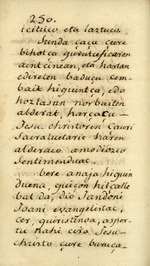 250.
icitico eta lastuia,
Junda caçu cure
bihotça
aintcinean, eta hartan
edireten baduçu cem-
bait higuintça, edo
hoztasun norbaiten
alderat, harçaçu
Jesu christoren Cauri
Sacratuetaric haren
alderaco amodiozco
Sentimenduac.
bere anaja higuin
duena, guiçon hilçalle
bat da, dio Jandoni
Joani evangelistac,
cer, guiristinoa, asper-
tu nahi ciro Jesu
christo cure burucą-